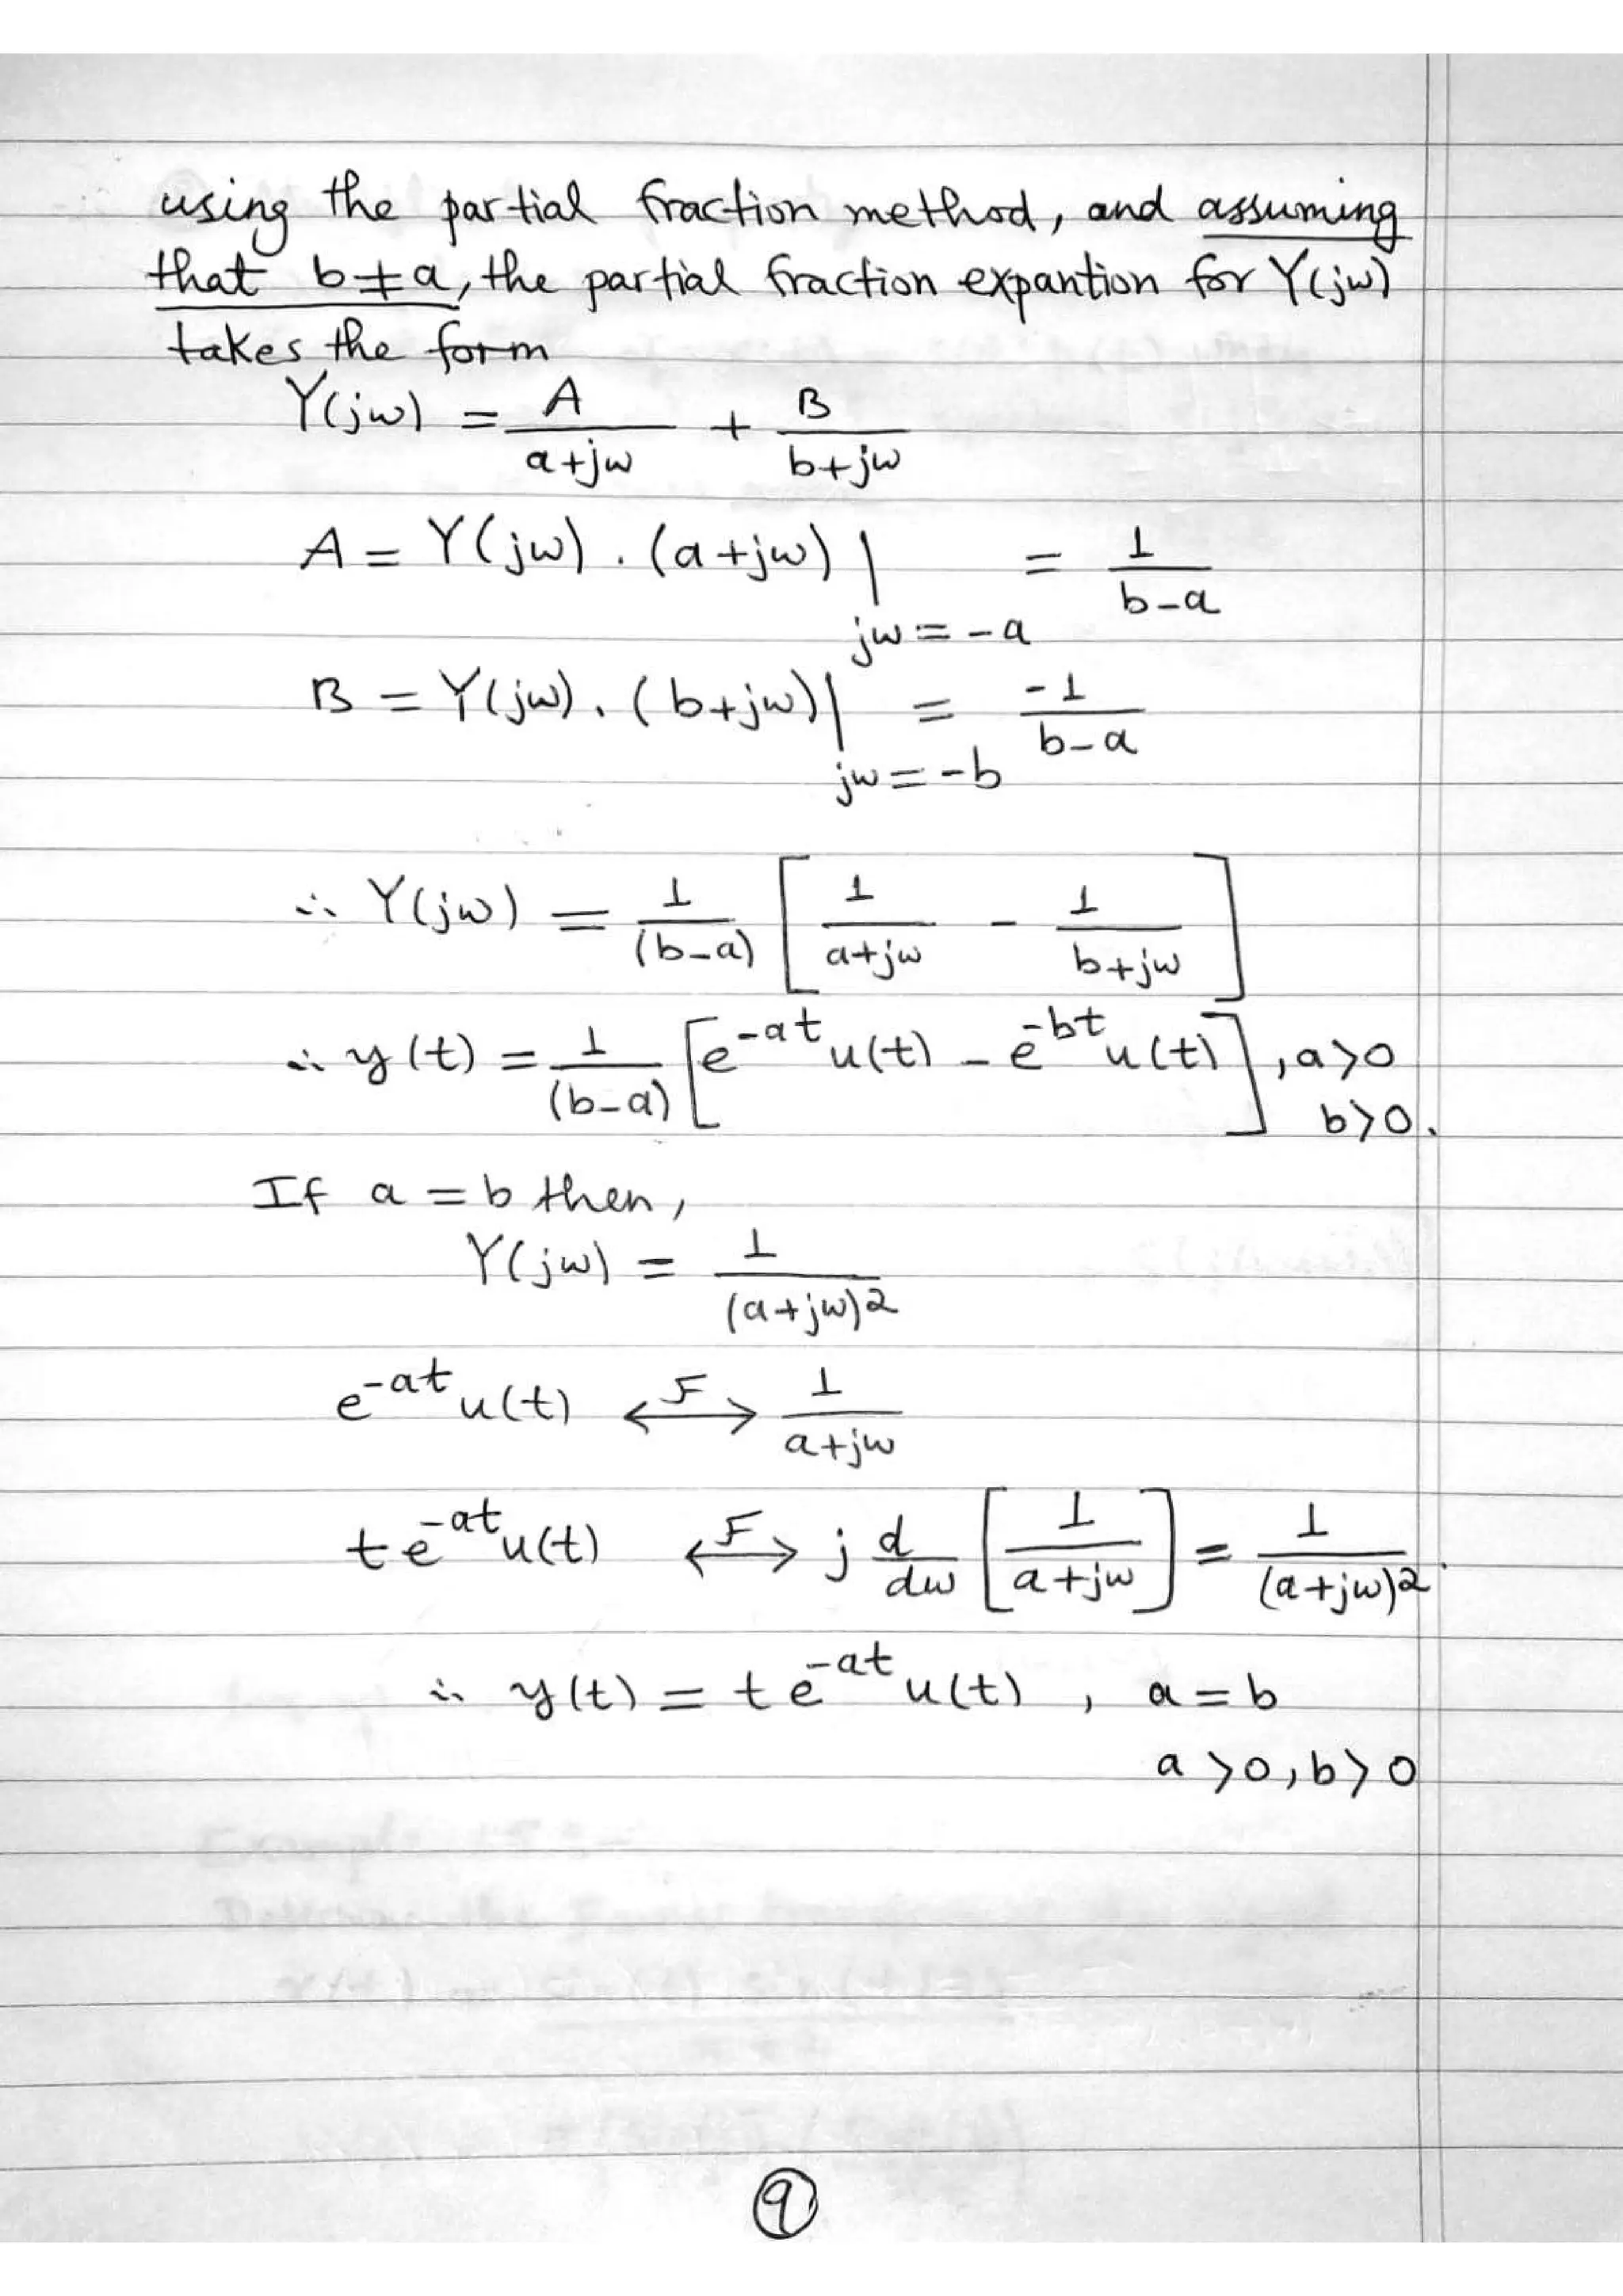 using the partial fraction method, and assuming
that b≠a, the partial fraction expantion for Y(jw)
takes the form
Y(jw) = A/(a+jw) + B/(b+jw)
A = Y(jw) . (a+jw) | jw = -a = 1/(b-a)
B = Y(jw) . (b+jw) | jw = -b = -1/(b-a)
∴ Y(jw) = 1/(b-a) [ 1/(a+jw) - 1/(b+jw) ]
∴ y(t) = 1/(b-a) [ e^-at u(t) - e^-bt u(t) ] , a>0
b>0.
If a = b then,
Y(jw) = 1/(a+jw)^2
e^-at u(t) <-F-> 1/(a+jw)
t e^-at u(t) <-F-> j d/dw [ 1/(a+jw) ] = 1/(a+jw)^2.
∴ y(t) = t e^-at u(t) , a = b
a >0, b>0
9